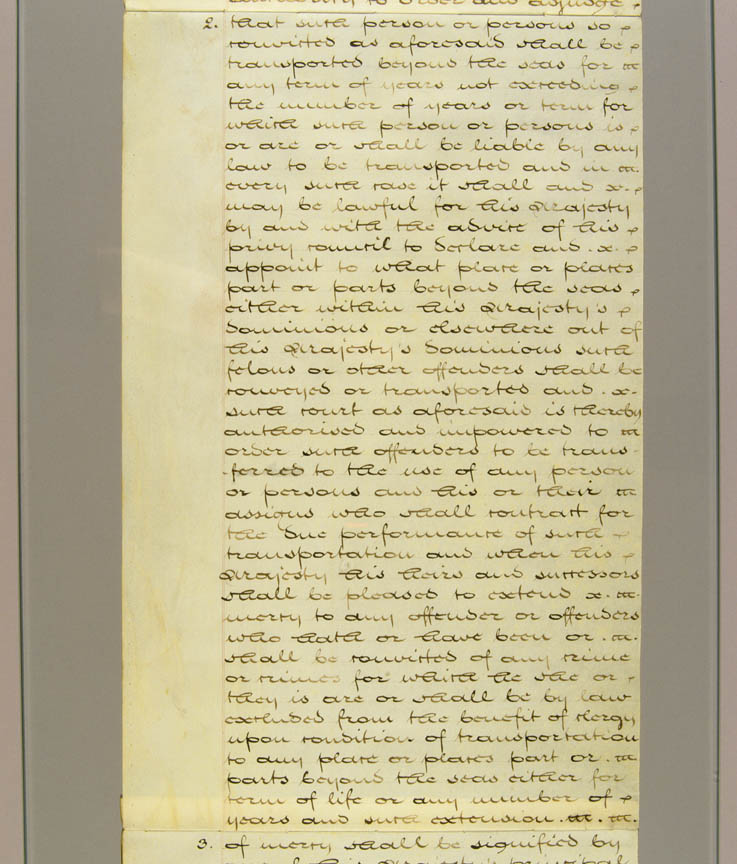 authority to order and adjudge
2. that such person or persons so
convicted as aforesaid shall be
transported beyond the seas for
any term of years not exceeding
the number of years or term for
which such person or persons is
or are or shall be liable by any
law to be transported and in
every such case it shall and
may be lawful for his Majesty
by and with the advice of his
privy council to declare and
appoint to what place or places
part or parts beyond the seas
either within his Majesty's
Dominions or elsewhere out of
his Majesty's Dominions such
felons or other offenders shall be
conveyed or transported and
such court as aforesaid is thereby
authorised and impowered to
order such offenders to be trans-
-ferred to the use of any person
or persons and his or their
assigns who shall contract for
the due performance of such
transportation and when his
Majesty his heirs and successors
shall be pleased to extend
mercy to any offender or offenders
who hath or have been or
shall be convicted of any crime
or crimes for which he she or
they is are or shall be by law
excluded from the benefit of clergy
upon condition of transportation
to any place or places part or
parts beyond the seas either for
term of life or any number of
years and such extension
3. of mercy shall be signified by